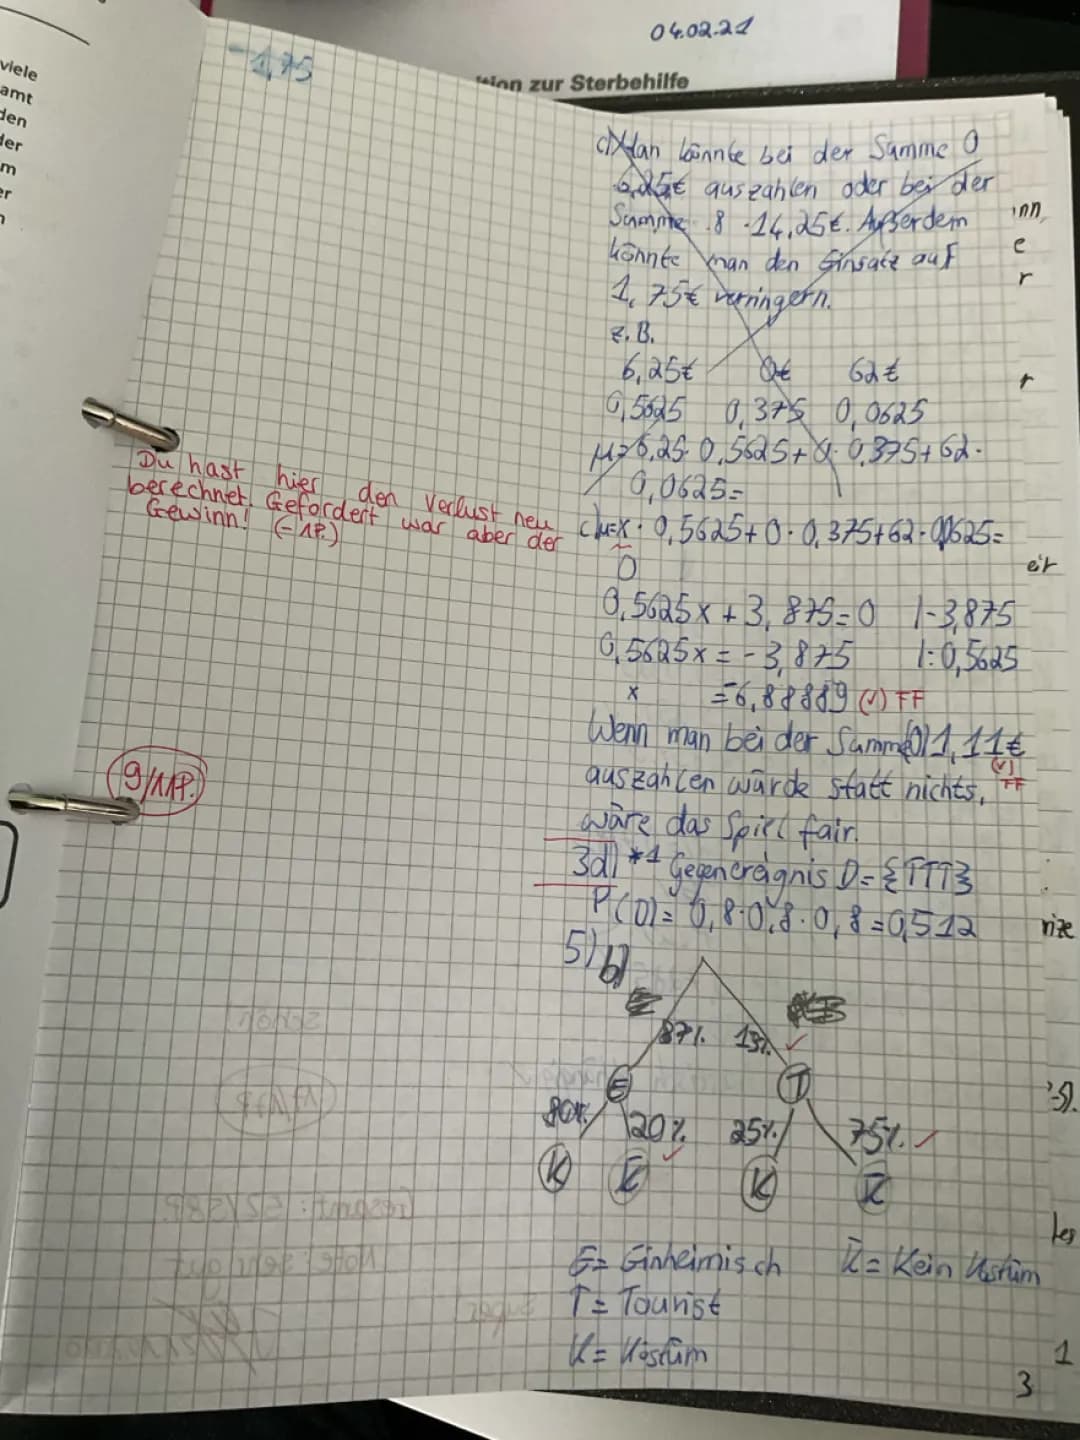 04.02.21
tion zur Sterbehilfe
viele
amt
den
der
m
er
n
-1,75
c) Man könnte bei der Summe 0
6,25€ auszahlen oder bei der
Summe 8 -14,25€. Außerdem
könnte man den Einsatz auf
1,75€ verringern.
z.B.
6,25€ 0€ 62€
0,5625 0,375 0,0625
μ=6,25·0,5625+0·0,375+62·
0,0625=
Du hast hier den Verlust neu
berechnet. Gefordert war aber der
Gewinn! (-1P.)
c) μ=x·0,5625+0·0,375+62·0,0625=
0
0,5625x+3,875=0 |-3,875
0,5625x=-3,875 |:0,5625
x =-6,88889 (✓) FF
Wenn man bei der Summe(0) 1,11€
(✓) FF
auszahlen würde statt nichts,
wäre das Spiel fair.
9/11P.
3d) *1 Gegenereignis D={TTT}
P(D)=0,8·0,8·0,8=0,512
5) b)
87% 13% ✓
E T
80% 20% ✓ 25% 75% ✓
K K̅ K K̅
E= Einheimisch K̅= Kein Kostüm
T= Tourist
K= Kostüm
inn,
e
r
r
eir
rize
-5).
les
1
3
schön!
Gesamt: 52/58P.
Note: sehr gut
super